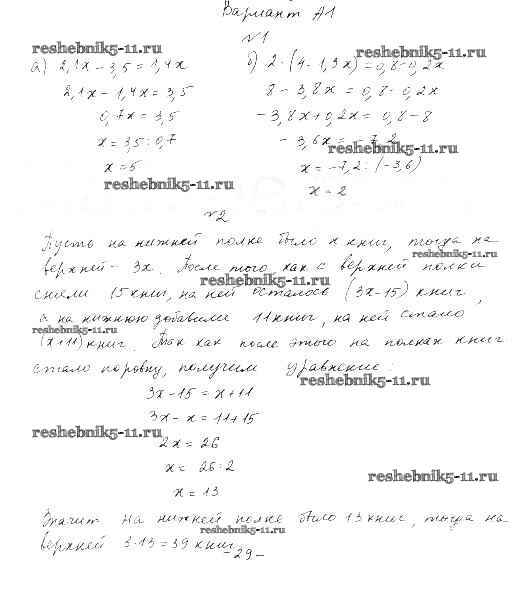 Вариант А1
№1
reshebnik5-11.ru
reshebnik5-11.ru
а) 2,1x - 3,5 = 1,4x
2,1x - 1,4x = 3,5
0,7x = 3,5
x = 3,5 : 0,7
x = 5
reshebnik5-11.ru
б) 2·(4 - 1,9x) = 0,8 - 0,2x
8 - 3,8x = 0,8 - 0,2x
-3,8x + 0,2x = 0,8 - 8
-3,6x = -7,2
reshebnik5-11.ru
x = -7,2 : (-3,6)
x = 2
№2
Пусть на нижней полке было x книг, тогда на
reshebnik5-11.ru
верхней - 3x. После того, как с верхней полки
reshebnik5-11.ru
сняли 15 книг, на ней осталось (3x-15) книг,
а на нижнюю добавили 11 книг, на ней стало
reshebnik5-11.ru
(x+11) книг. Так как после этого на полках книг
стало поровну, получим уравнение:
reshebnik5-11.ru
3x - 15 = x + 11
3x - x = 11 + 15
reshebnik5-11.ru
2x = 26
x = 26 : 2
reshebnik5-11.ru
x = 13
Значит на нижней полке было 13 книг, тогда на
reshebnik5-11.ru
верхней 3·13 = 39 книг
- 29 -